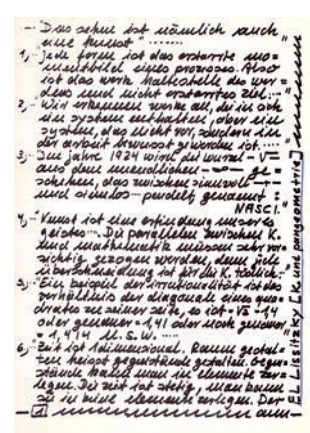 - "Das sehen ist nämlich auch
eine kunst" ........
1,- "Jede form ist das erstarrte mo=
mentbild eines prozesses. Also
ist das werk haltestelle des wer=
dens und nicht erstarrtes ziel...."
2,- "Wir erkennen werke an, die in sich
ein system enthalten, aber ein
system, das nicht vor, sondern in
der arbeit bewusst geworden ist. ....."
3,- "Im jahre 1924 wird die wurzel - √ -
aus dem unendlichen - ∞ - ge =
schehen, das zwischen sinnvoll - + -
und sinnlos - pendelt, genannt:
NASCI."
4,- "Kunst ist eine erfindung unseres
geistes... Die parallelen zwischen K.
und mathematik müssen sehr vor=
sichtig gezogen werden, denn jede
überschneidung ist für die K. tödlich."
5,- "Ein beispiel der irrationalität ist das
verhältnis der diagonale eines qua=
drates zu seiner seite, es ist = √2 = 1,4
oder genauer = 1,41 oder noch genauer
= 1,414 U.S.W. ....."
6,- "Zeit ist 1 dimensional. Raum gestal=
ten heisst gegenstände gestalten. Gegen=
stände kann man in elemente zer=
legen. Die zeit ist stetig, man kann
sie in keine elemente zerlegen. Der
- 1 - - aum -
EL Lissitzky [K. und pangeometrie]